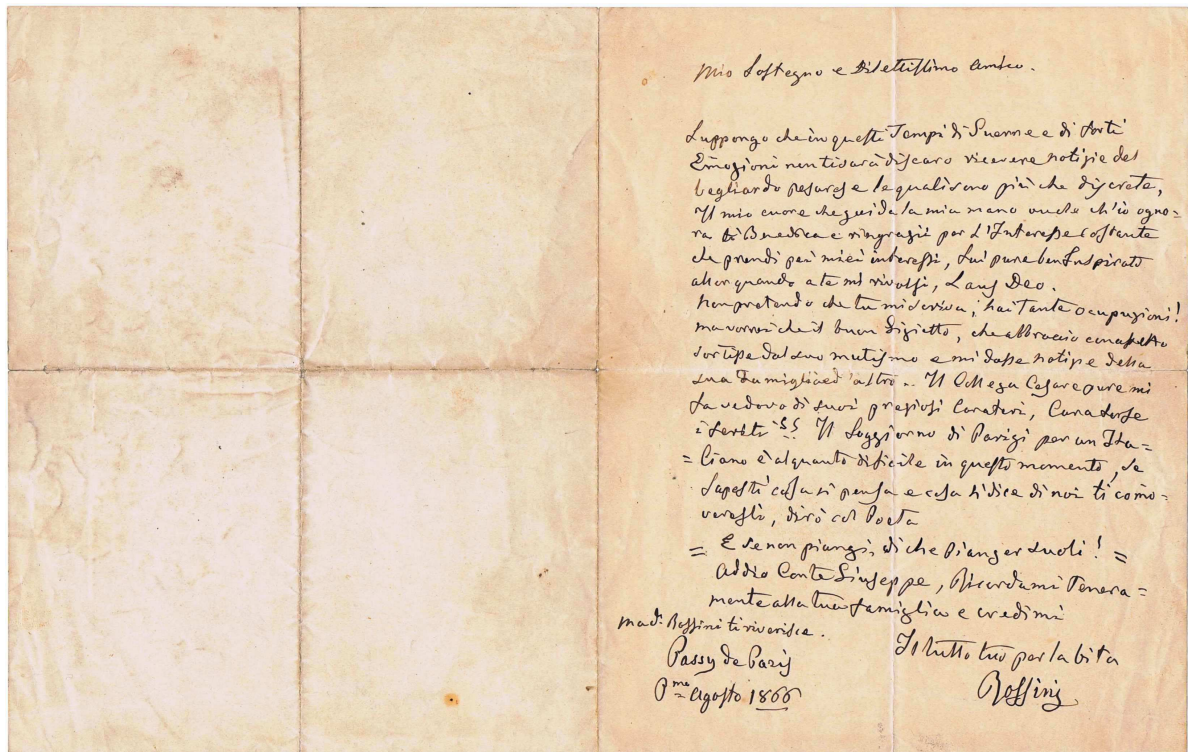 Mio Sostegno e Dilettissimo Amico.
Suppongo che in questi Tempi di Guerre e di forti
Emozioni non ti sarà discaro ricevere notizie del
vegliardo pesarese le quali sono più che discrete,
Il mio cuore che guida la mia mano vuole ch'io ogno-
ra ti Benedica e ringrazii per L'Interesse costante
che prendi pei miei interessi, fui pure ben Inspirato
allorquando a te mi rivolsi, Laus Deo.
Non pretendo che tu mi scriva, hai Tante occupazioni!
ma vorrei che il buon Gigietto, che abbraccio con affetto
sortisse dal suo mutismo e mi dasse notizie della
sua Famiglia ed altro .. Il Collega Cesare pure mi
fa vedovo di suoi preziosi Caratteri,
i feriti !! Il Soggiorno di Parigi per un Ita=
=liano è alquanto dificile in questo momento, se
sapesti cosa si pensa e cosa si dice di noi ti como=
veresti, dirò col Poeta
= E se non piangi, di che Pianger suoli! =
Addio Conte Giuseppe, Ricordami Tenera=
mente alla tua famiglia e credimi
Mad. Rossini ti riverisce.
Il tutto tuo per la vita
Rossini
Passy de Paris
P.mo Agosto 1866